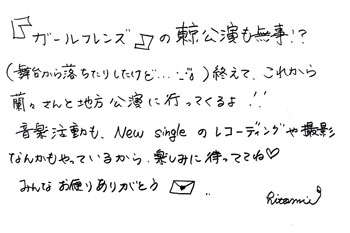 『ガールフレンズ』の東京公演も無事!?
(舞台から落ちたりしたけど…)終えて、これから
蘭々さんと地方公演に行ってくるよ!!
音楽活動も、New singleのレコーディングや撮影
なんかもやっているから、楽しみに待っててね♡
みんなお便りありがとう
Ritamie